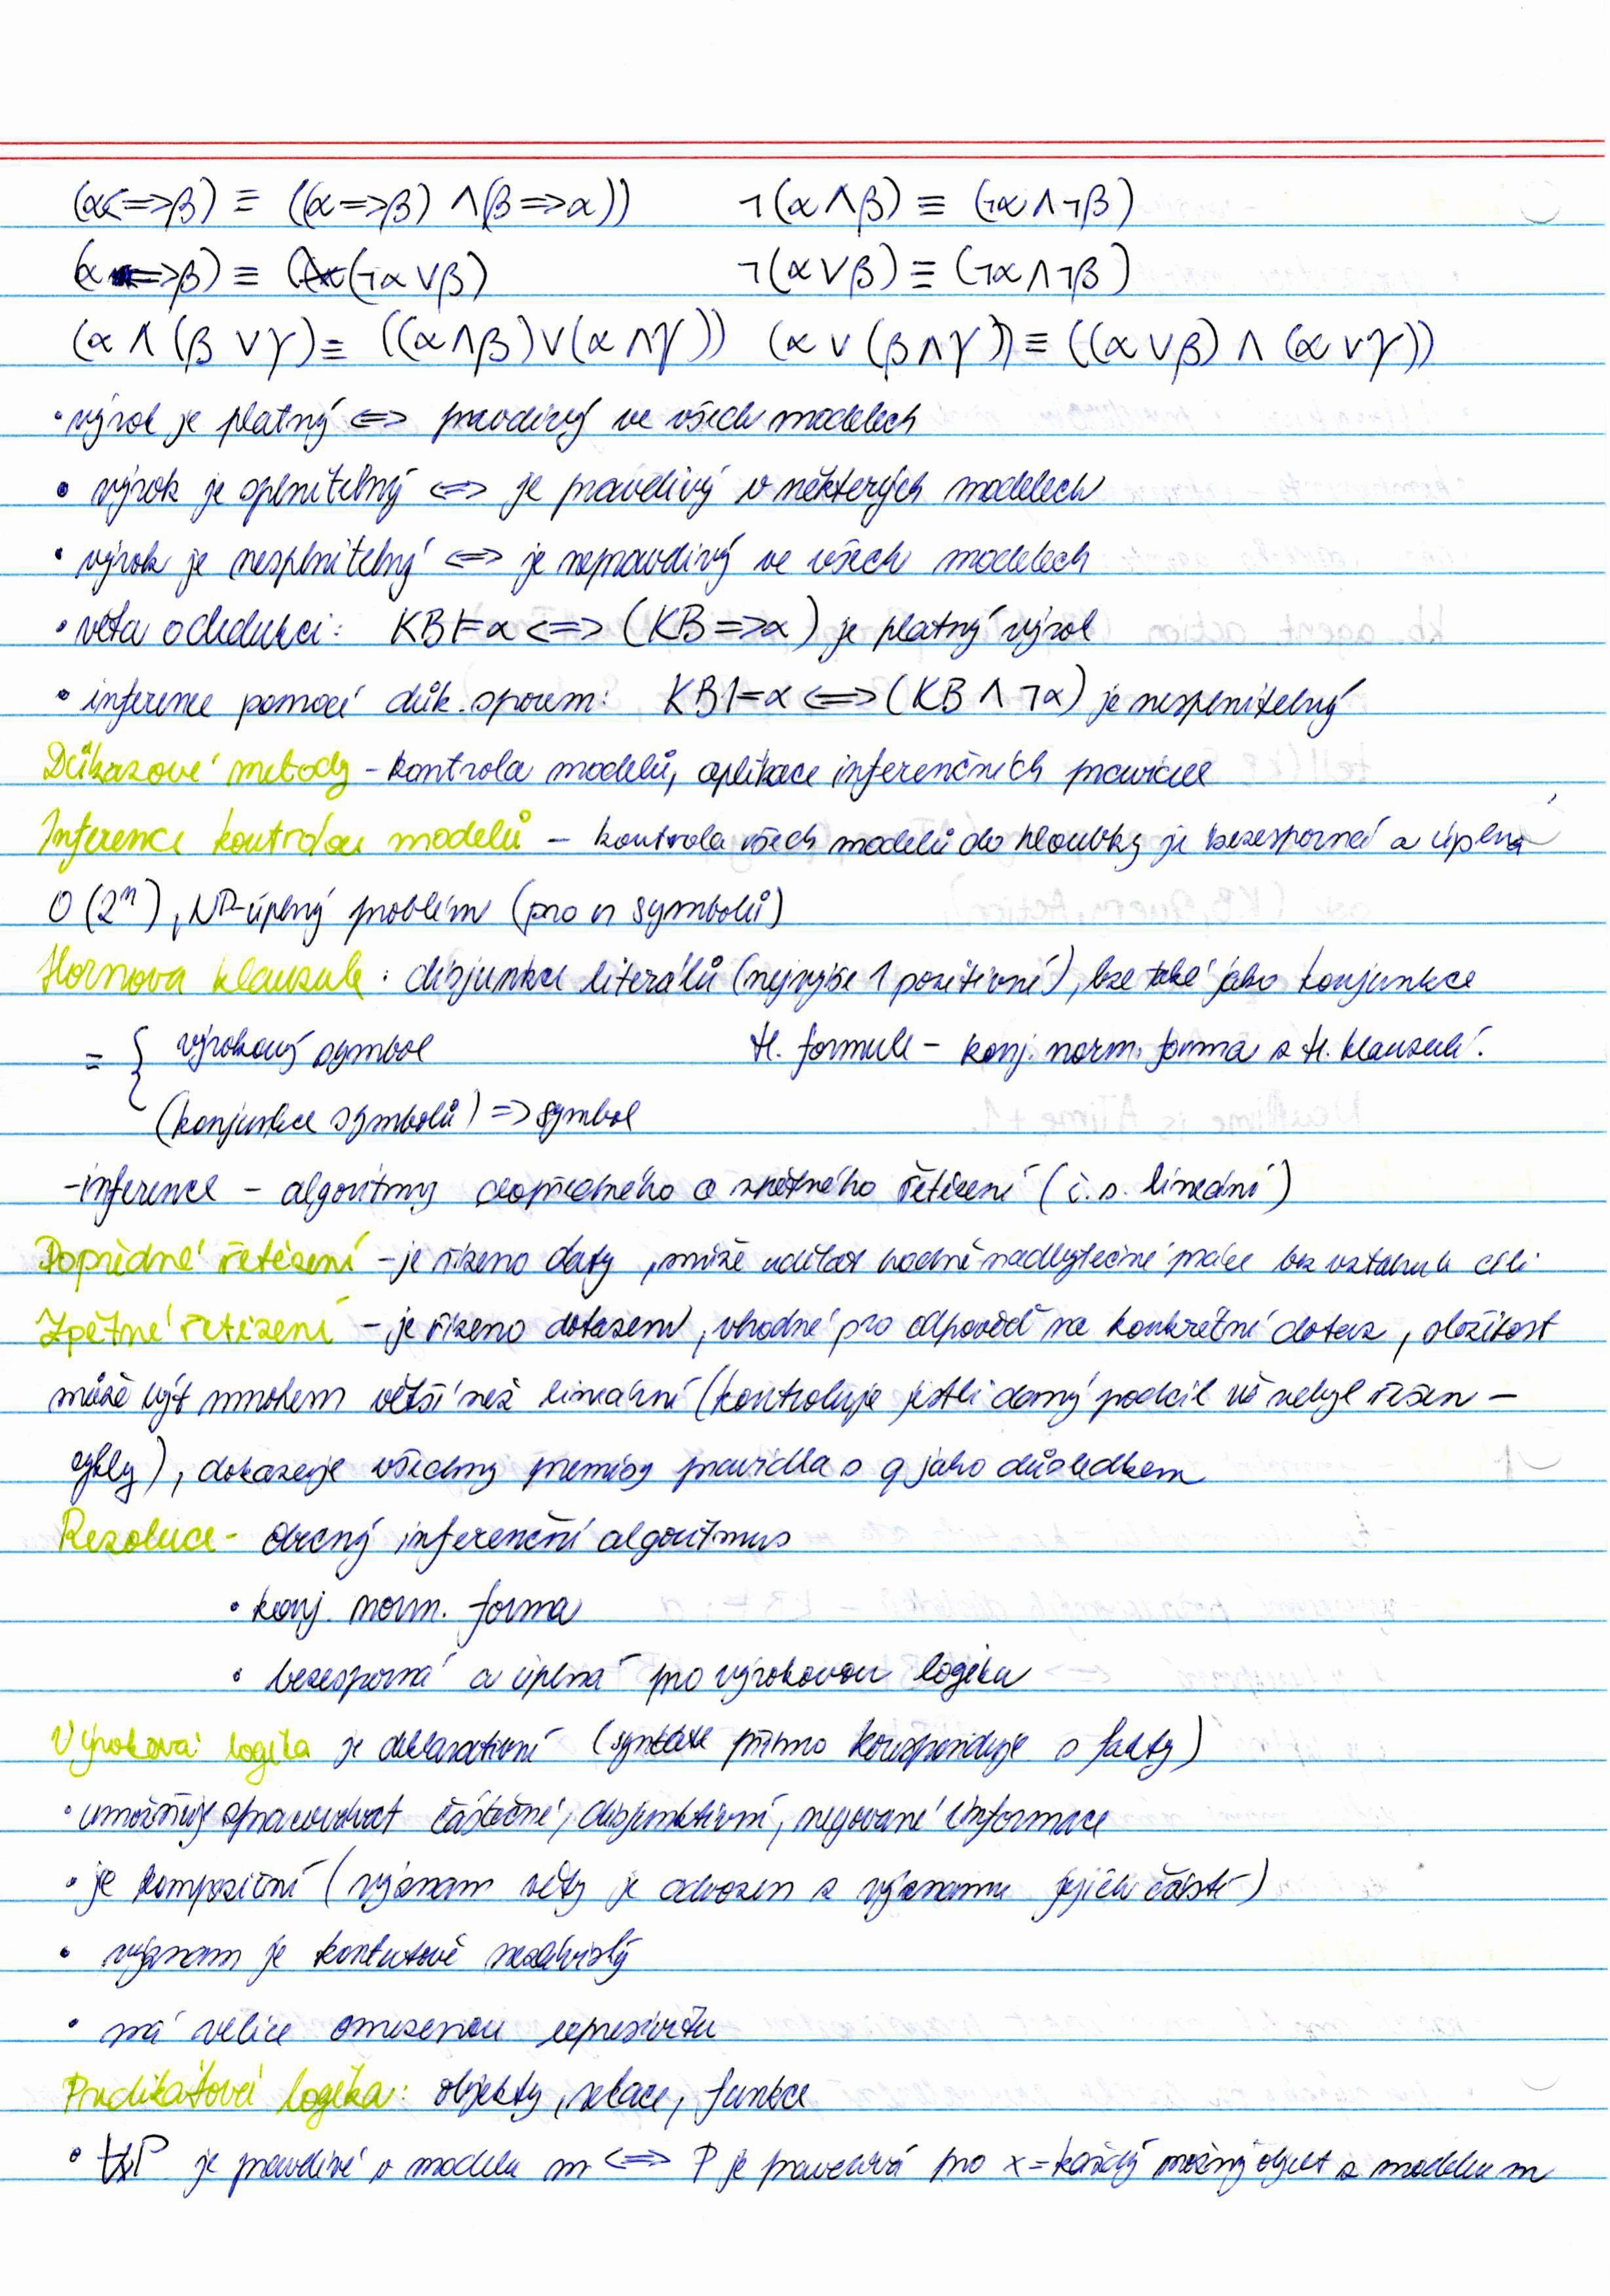 (α<=>β) ≡ ((α=>β) ∧(β=>α)) ¬(α∧β) ≡ (¬α∧¬β)
(α =>β) ≡ (¬α∨β) ¬(α∨β) ≡ (¬α∧¬β)
(α ∧ (β ∨γ) ≡ ((α∧β)∨(α∧γ)) (α ∨ (β∧γ)) ≡ ((α∨β) ∧ (α∨γ))
• výrok je platný <=> pravdivý ve všech modelech
• výrok je splnitelný <=> je pravdivý v některých modelech
• výrok je nesplnitelný <=> je nepravdivý ve všech modelech
• věta o dedukci: KB⊨α <=> (KB=>α) je platný výrok
• inference pomocí důk. sporem: KB⊨α <=> (KB ∧ ¬α) je nesplnitelný
Důkazové metody - kontrola modelů, aplikace inferenčních pravidel
Inference kontrolou modelů - kontrola všech modelů do hloubky je bezesporná a úplná
O(2ⁿ), NP-úplný problém (pro n symbolů)
Hornova klauzule: disjunkce literálů (nejvýše 1 pozitivní), lze také jako konjunkce
= { výrokový symbol H. formule - konj. norm. forma z H. klauzulí.
(konjunkce symbolů) => symbol
-inference - algoritmy dopředného a zpětného řetězení (č. s. lineární)
Dopředné řetězení - je řízeno daty, může udělat hodně nadbytečné práce bez vztahu k cíli
Zpětné řetězení - je řízeno dotazem, vhodné pro odpověď na konkrétní dotaz, složitost
může být mnohem větší než lineární (kontroluje jestli daný podcíl už nebyl řešen -
cykly), dokazuje všechny premisy pravidla s q jako důsledkem
Rezoluce - obecný inferenční algoritmus
• konj. norm. forma
• bezesporná a úplná pro výrokovou logiku
Výroková logika je deklarativní (syntaxe přímo koresponduje s fakty)
• umožňuje zpracovávat částečné, disjunktivní, negované informace
• je kompoziční (význam věty je odvozen z významu jejích částí)
• význam je kontextově nezávislý
• má velice omezenou expresivitu
Predikátová logika: objekty, relace, funkce
• ∀xP je pravdivé v modelu m <=> P je pravdivá pro x = každý možný objekt z modelu m